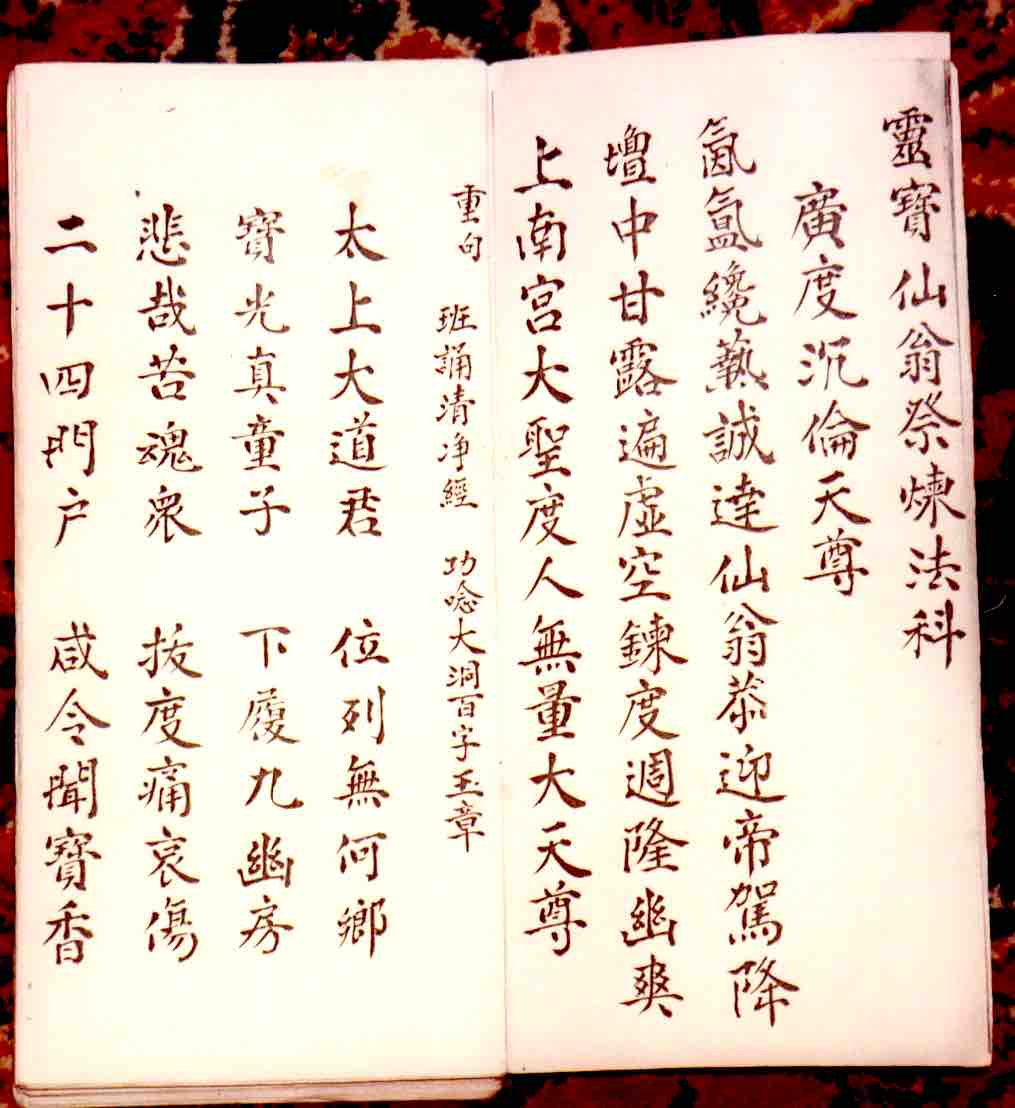 靈寶仙翁祭煉法科
廣度沉倫天尊
氤氳纔爇誠達仙翁恭迎帝駕降
壇中甘露遍虛空鍊度週隆幽爽
上南宮大聖度人無量大天尊
重句 班誦清净經 功唸大洞百字玉章
太上大道君 位列無何鄉
寶光真童子 下履九幽房
悲哉苦魂衆 拔度痛哀傷
二十四門户 咸令聞寶香